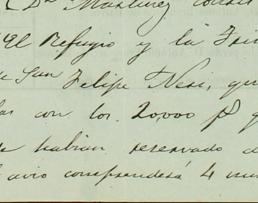 (Dn Martinez
El Refugio y la
de San Felipe Neri, que
las con los 20,000 $ q
se habian reservado d
avio comprenderá 4